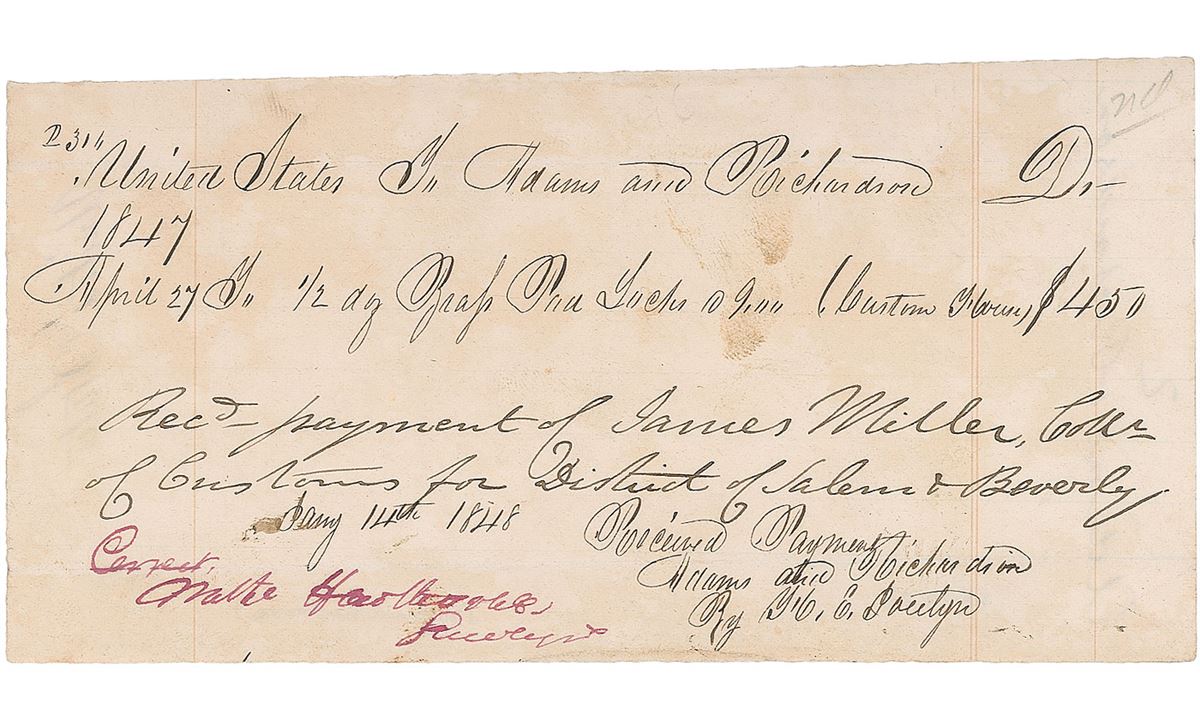 United States To Adams and Richardson Dr
1847
April 27 To 1/2 dz Brass Pad Locks @ 9.00 (Custom House) $4.50
Recd payment of James Miller, Collr
of Customs for District of Salem & Beverly
Jany 14th 1848
Received Payment
Adams and Richardson
By
Correct.
Nathl Hawthorne,
Surveyor